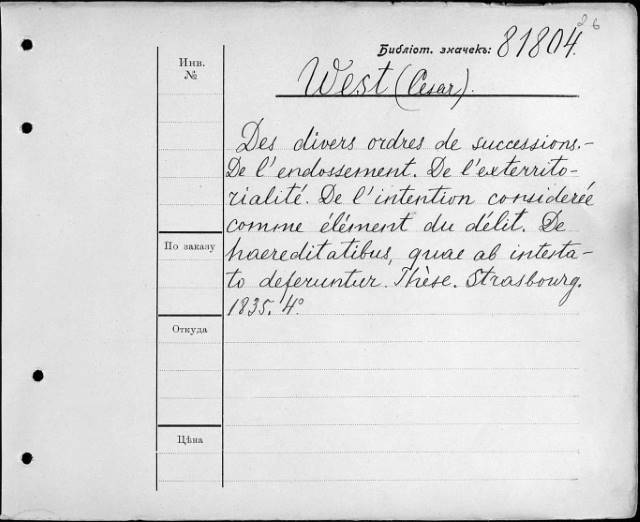 26
Библіот. значекъ: 81804.
Инв.
№
West (Cesar).
Des divers ordres de successions.-
De l'endossement. De l'exterrito-
rialité. De l'intention considerée
comme élément du délit. De
haereditatibus, quae ab intesta-
to deferuntur. Thèse. Strasbourg.
1835. 4°
По заказу
Откуда
Цѣна